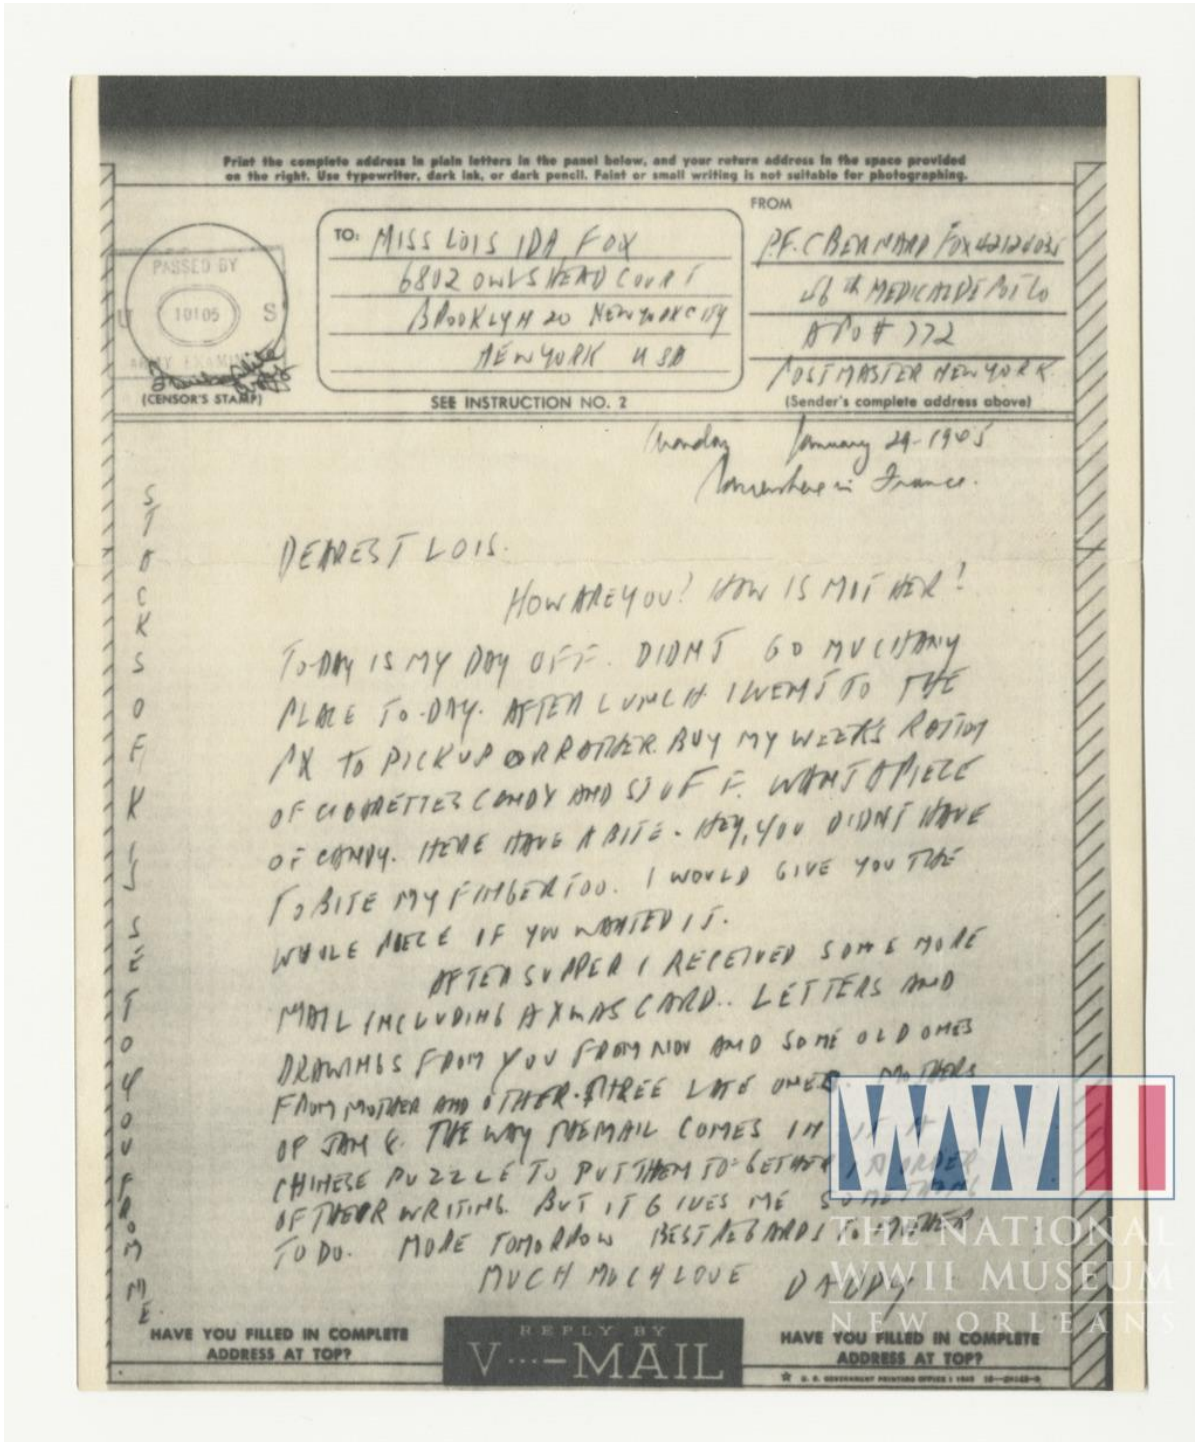 Print the complete address in plain letters in the panel below, and your return address in the space provided
on the right. Use typewriter, dark ink, or dark pencil. Faint or small writing is not suitable for photographing.
FROM
TO: MISS LOIS IDA FOX
6802 OWLS HEAD COURT
BROOKLYN 20 NEW YORK CITY
NEW YORK USA
P.F.C BERNARD FOX
MEDICAL DEPOT CO
APO # 772
POSTMASTER NEW YORK
PASSED BY
U 10105 S
ARMY EXAMINER
(CENSOR'S STAMP)
SEE INSTRUCTION NO. 2
(Sender's complete address above)
Monday January 29-1945
Somewhere in France.
DEAREST LOIS.
HOW ARE YOU? HOW IS MOTHER?
TO-DAY IS MY DAY OFF. DIDNT GO MUCH ANY
PLACE TO-DAY. AFTER LUNCH I WENT TO THE
PX TO PICK UP OR RATHER BUY MY WEEKS RATION
OF CIGARETTES CANDY AND STUFF. WANT A PIECE
OF CANDY. HERE HAVE A BITE - HEY, YOU DIDNT HAVE
TO BITE MY FINGER TOO. I WOULD GIVE YOU THE
WHOLE PIECE IF YOU WANTED IT.
AFTER SUPPER I RECEIVED SOME MORE
MAIL INCLUDING A XMAS CARD.. LETTERS AND
DRAWINGS FROM YOU FROM NOV AND SOME OLD ONES
FROM MOTHER AND OTHER. THREE LATE ONES. MOTHERS
OF JAN 8. THE WAY THE MAIL COMES IN IT IS A
CHINESE PUZZLE TO PUT THEM TO-GETHER IN ORDER
OF THEIR WRITING. BUT IT GIVES ME SOMETHING
TO DO. MORE TOMORROW BEST REGARDS TO MOTHER
MUCH MUCH LOVE DADDY
STACKS OF KISSES TO YOU FROM ME
HAVE YOU FILLED IN COMPLETE
ADDRESS AT TOP?
REPLY BY
V···—MAIL
HAVE YOU FILLED IN COMPLETE
ADDRESS AT TOP?
U. S. GOVERNMENT PRINTING OFFICE
WWII
THE NATIONAL
WWII MUSEUM
NEW ORLEANS